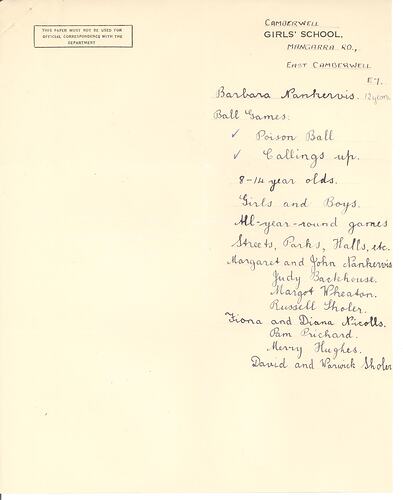 THIS PAPER MUST NOT BE USED FOR
OFFICIAL CORRESPONDENCE WITH THE
DEPARTMENT
CAMBERWELL
GIRLS' SCHOOL,
MANGARRA RD.,
EAST CAMBERWELL
E7.
Barbara Nankervis. 12 years
Ball Games:
✓ Poison Ball
✓ Callings up.
8-14 year olds.
Girls and Boys.
All-year-round games
Streets, Parks, Halls, etc.
Margaret and John Nankervis
Judy Backhouse.
Margot Wheaton.
Russell Sholer.
Fiona and Diana Nicolls.
Pam Prichard.
Merry Hughes.
David and Warwick Sholer